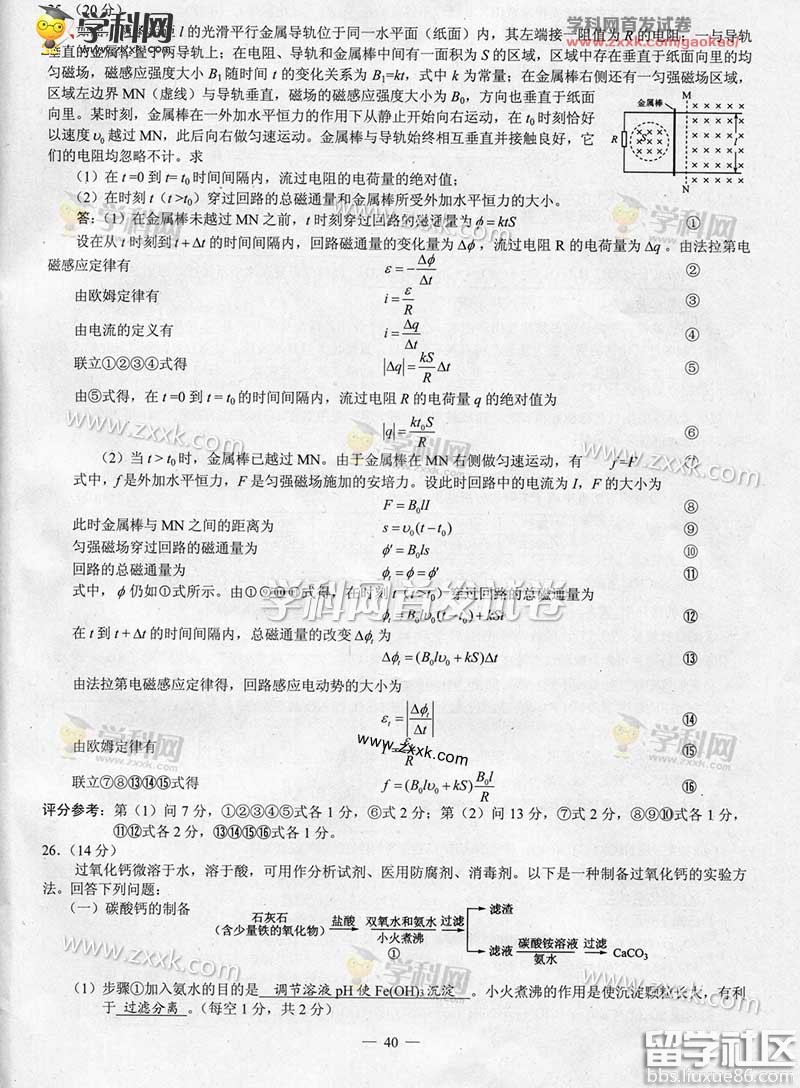 25.（20分）
学科网 学科网首发试卷
www.zxxk.com/gaokao/
的光滑平行金属导轨位于同一水平面（纸面）内，其左端接一阻值为 R 的电阻；一与导轨
垂直的金属棒置于两导轨上；在电阻、导轨和金属棒中间有一面积为 S 的区域，区域中存在垂直于纸面向里的均
匀磁场，磁感应强度大小 B₁随时间 t 的变化关系为 B₁=kt，式中 k 为常量；在金属棒右侧还有一匀强磁场区域，
区域左边界 MN（虚线）与导轨垂直，磁场的磁感应强度大小为 B₀，方向也垂直于纸面
向里。某时刻，金属棒在一外加水平恒力的作用下从静止开始向右运动，在 t₀时刻恰好
以速度 υ₀ 越过 MN，此后向右做匀速运动。金属棒与导轨始终相互垂直并接触良好，它
们的电阻均忽略不计。求
金属棒 M
R l
N
（1）在 t =0 到 t= t₀ 时间间隔内，流过电阻的电荷量的绝对值；
（2）在时刻 t（t >t₀）穿过回路的总磁通量和金属棒所受外加水平恒力的大小。
答：（1）在金属棒未越过 MN 之前，t 时刻穿过回路的磁通量为 ϕ = ktS ①
设在从 t 时刻到 t + Δt 的时间间隔内，回路磁通量的变化量为 Δϕ，流过电阻 R 的电荷量为 Δq 。由法拉第电
磁感应定律有 ε = −Δϕ/Δt ②
由欧姆定律有 i = ε/R ③
由电流的定义有 i = Δq/Δt ④
联立①②③④式得 |Δq| = kS/R Δt ⑤
由⑤式得，在 t =0 到 t = t₀ 的时间间隔内，流过电阻 R 的电荷量 q 的绝对值为
|q| = kt₀S/R ⑥
（2）当 t > t₀ 时，金属棒已越过 MN。由于金属棒在 MN 右侧做匀速运动，有 f=F ⑦
式中，f 是外加水平恒力，F 是匀强磁场施加的安培力。设此时回路中的电流为 I，F 的大小为
F = B₀lI ⑧
此时金属棒与 MN 之间的距离为 s = υ₀(t − t₀) ⑨
匀强磁场穿过回路的磁通量为 ϕ' = B₀ls ⑩
回路的总磁通量为 ϕt = ϕ = ϕ' ⑪
式中，ϕ 仍如①式所示。由①⑨⑩⑪式得，在时刻 t（t > t₀）穿过回路的总磁通量为
ϕt = B₀lυ₀(t − t₀) + kSt ⑫
在 t 到 t + Δt 的时间间隔内，总磁通量的改变 Δϕt 为
Δϕt = (B₀lυ₀ + kS)Δt ⑬
由法拉第电磁感应定律得，回路感应电动势的大小为
εt = |Δϕt/Δt| ⑭
由欧姆定律有 R ⑮
联立⑦⑧⑬⑭⑮式得 f = (B₀lυ₀ + kS) B₀l/R ⑯
评分参考：第（1）问 7 分，①②③④⑤式各 1 分，⑥式 2 分；第（2）问 13 分，⑦式 2 分，⑧⑨⑩式各 1 分，
⑪⑫式各 2 分，⑬⑭⑮⑯式各 1 分。
26.（14 分）
过氧化钙微溶于水，溶于酸，可用作分析试剂、医用防腐剂、消毒剂。以下是一种制备过氧化钙的实验方
法。回答下列问题：
（一）碳酸钙的制备
石灰石 （含少量铁的氧化物） 盐酸 双氧水和氨水 小火煮沸 ① 过滤 滤渣
滤液 碳酸铵溶液 氨水 过滤 CaCO₃
（1）步骤①加入氨水的目的是 调节溶液 pH 使 Fe(OH)₃ 沉淀 。小火煮沸的作用是使沉淀颗粒长大，有利
于 过滤分离 。（每空 1 分，共 2 分）
— 40 —
学科网 www.zxxk.com
学科网首发试卷
留学社区
bbs.liuxue86.com